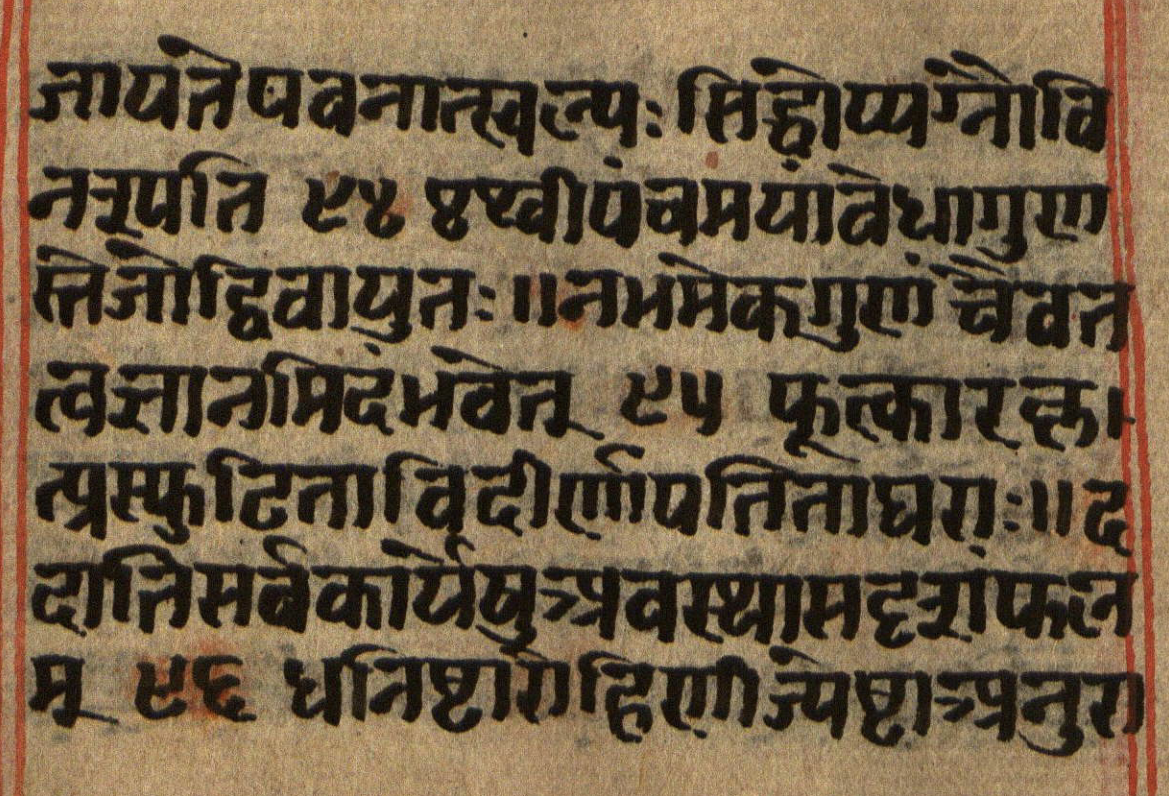 जायतेपवनात्स्वल्पः सिद्धोप्यग्नौवि
नश्यति ९४ पृथ्वीपंचमयांवेधागुण
स्तेजोद्विवायुतः ॥नभमेकगुणं चैवत
त्वज्ञानमिदंभवेत् ९५ फूत्कारकृ।
त्प्रस्फुटिताविदीर्णापतिताधराः॥द
दातिसर्वकार्येषुअवस्थासदृशंफल
म् ९६ धनिष्टारोहिणीज्येष्टाअनुरा